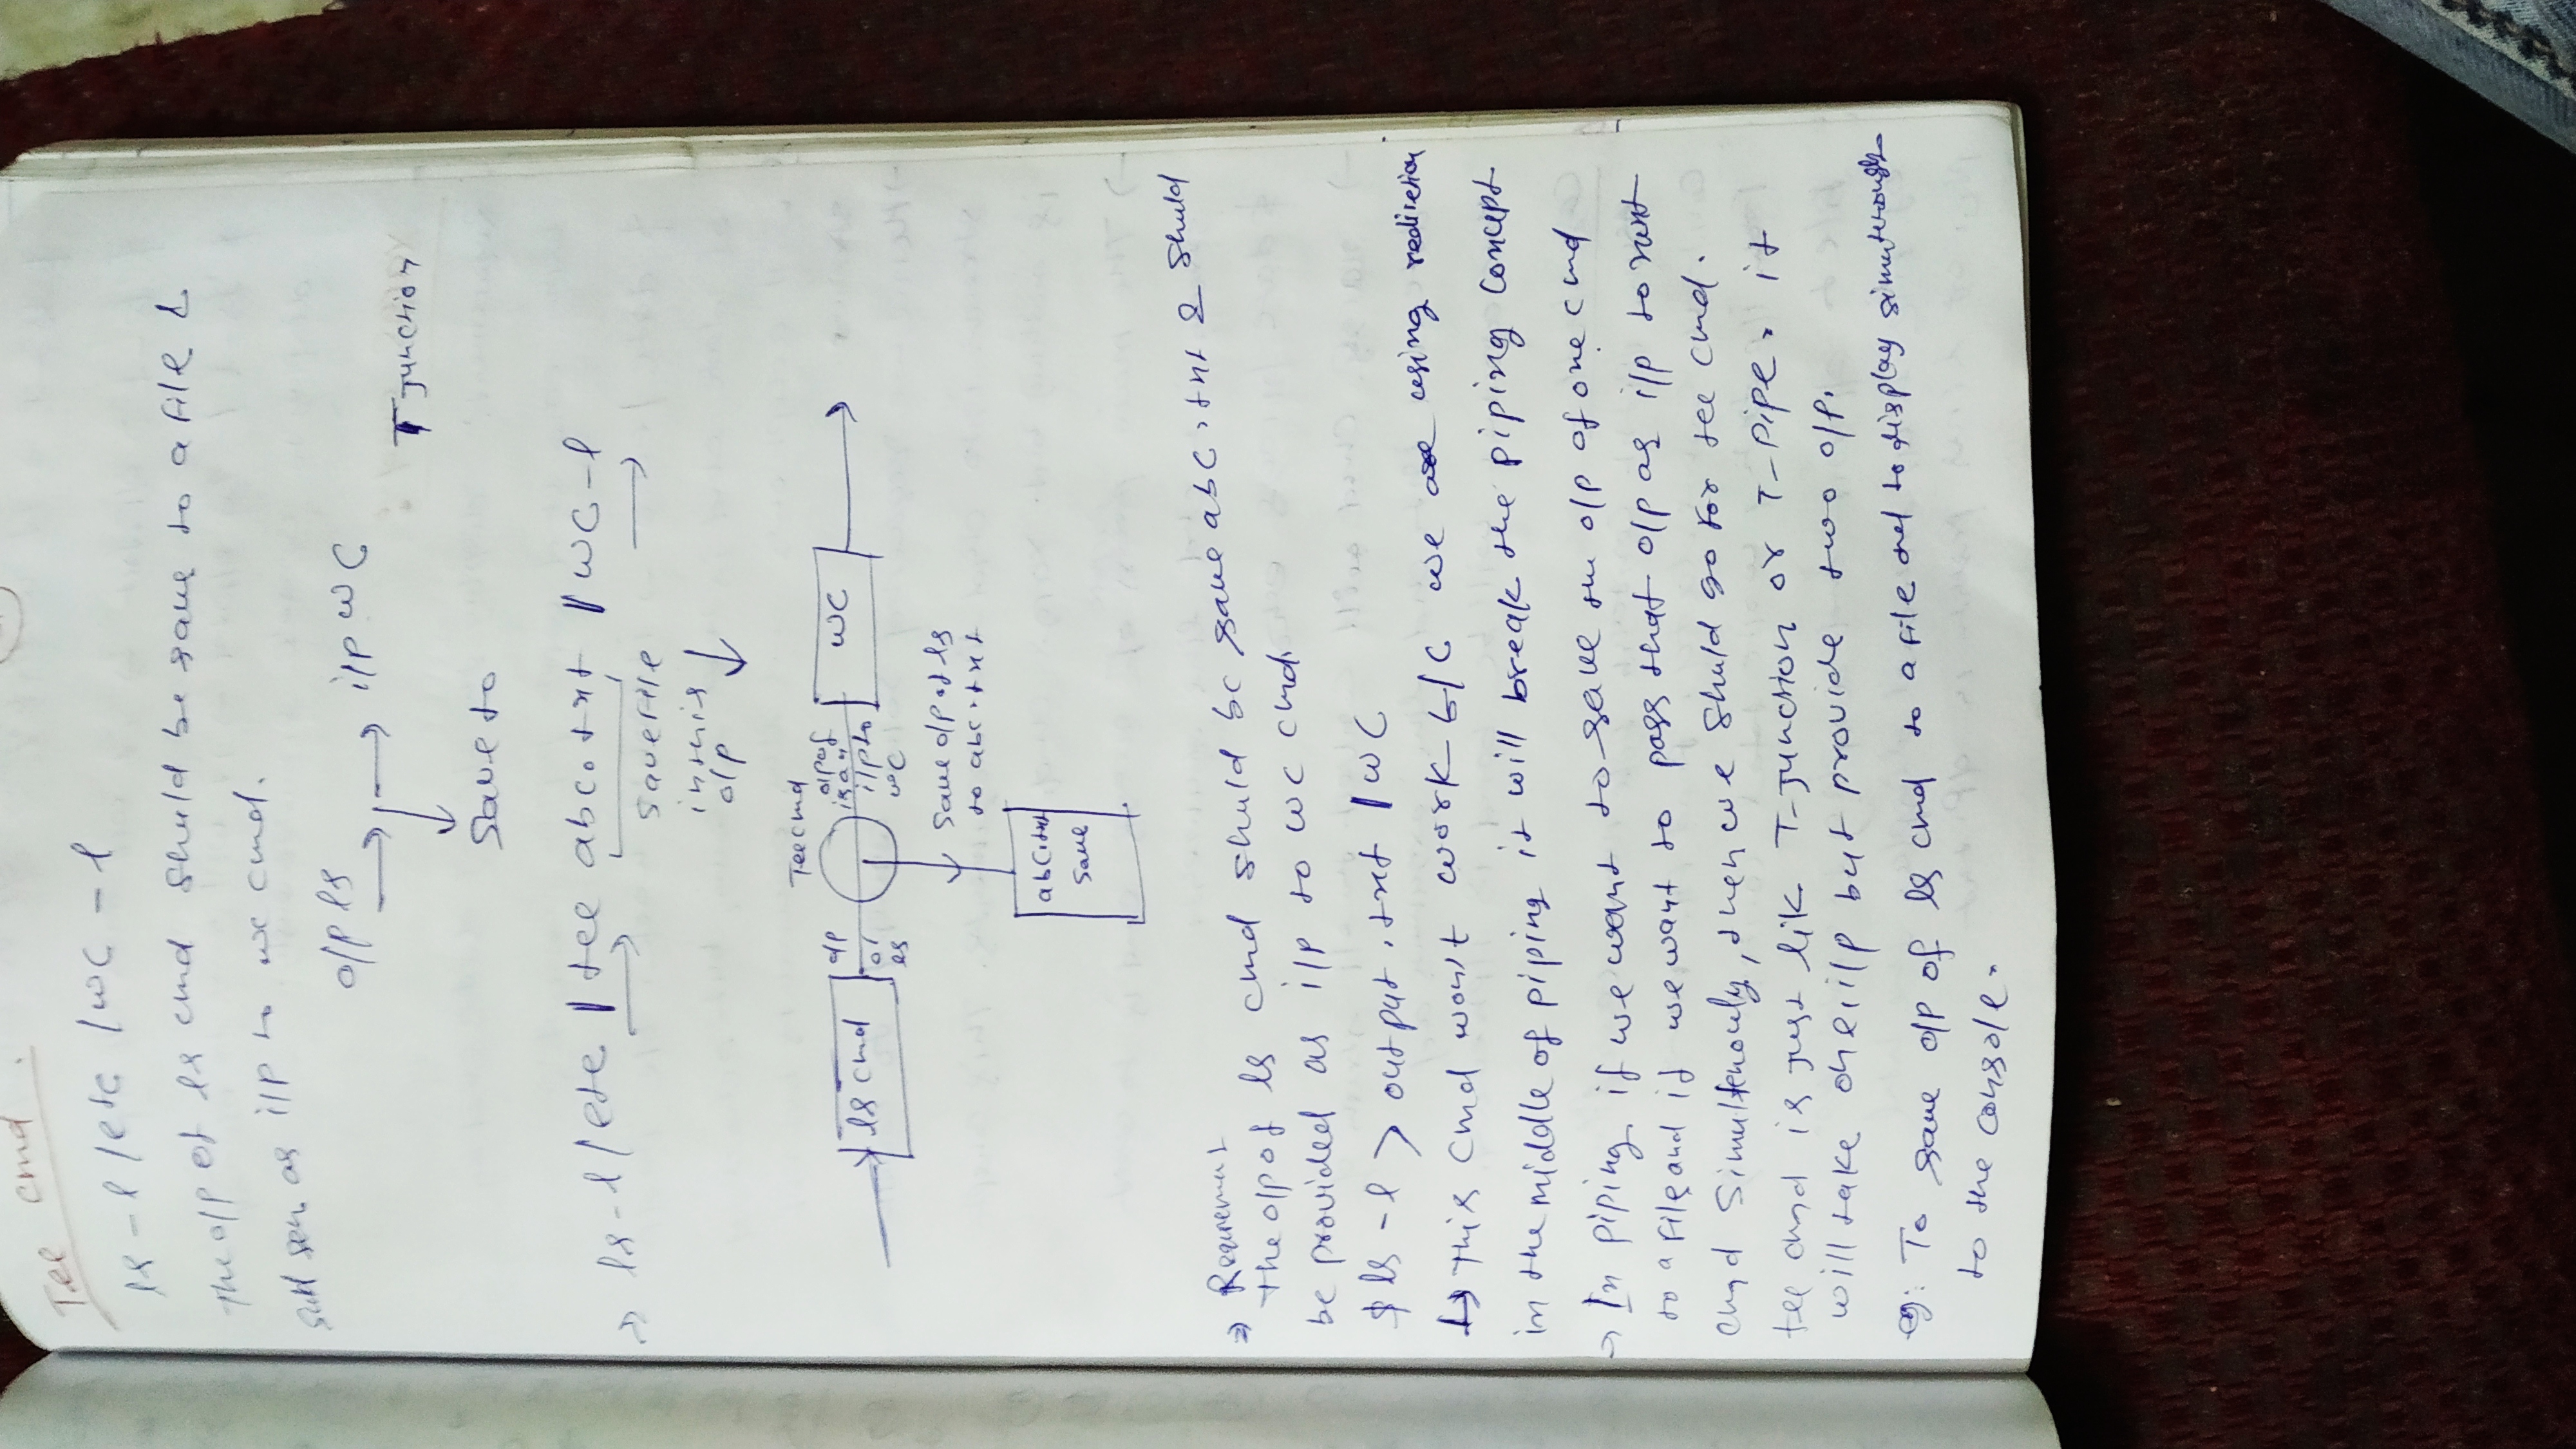 Tee cmd :
ls -l /etc | wc -l
The o/p of ls cmd shuld be save to a file &
as i/p to wc cmd.
o/p ls → → i/p wc
T Junction
Save to
→ ls -l /etc | tee abc.txt | wc -l
save file
in this
o/p
Tee cmd
ls cmd
o/p
of
ls
o/p of
is an
i/p to
wc
wc
Save o/p of ls
to abc.txt
abc.txt
save
⇒ Requirement
the o/p of ls cmd shuld be save abc.txt & shuld
be provided as i/p to wc cmd.
$ ls -l > output.txt | wc
↳ This cmd won't work b/c we are using redirection
in the middle of piping it will break the piping concept
→ In piping, if we want to save the o/p of one cmd
to a file and if we want to pass that o/p as i/p to next
cmd simultenously, then we shuld go for tee cmd.
tee cmd is just lik T-Junction or T-Pipe. it
will take one i/p but provide two o/p.
eg: To save o/p of ls cmd to a file and to display simultenously
to the console.